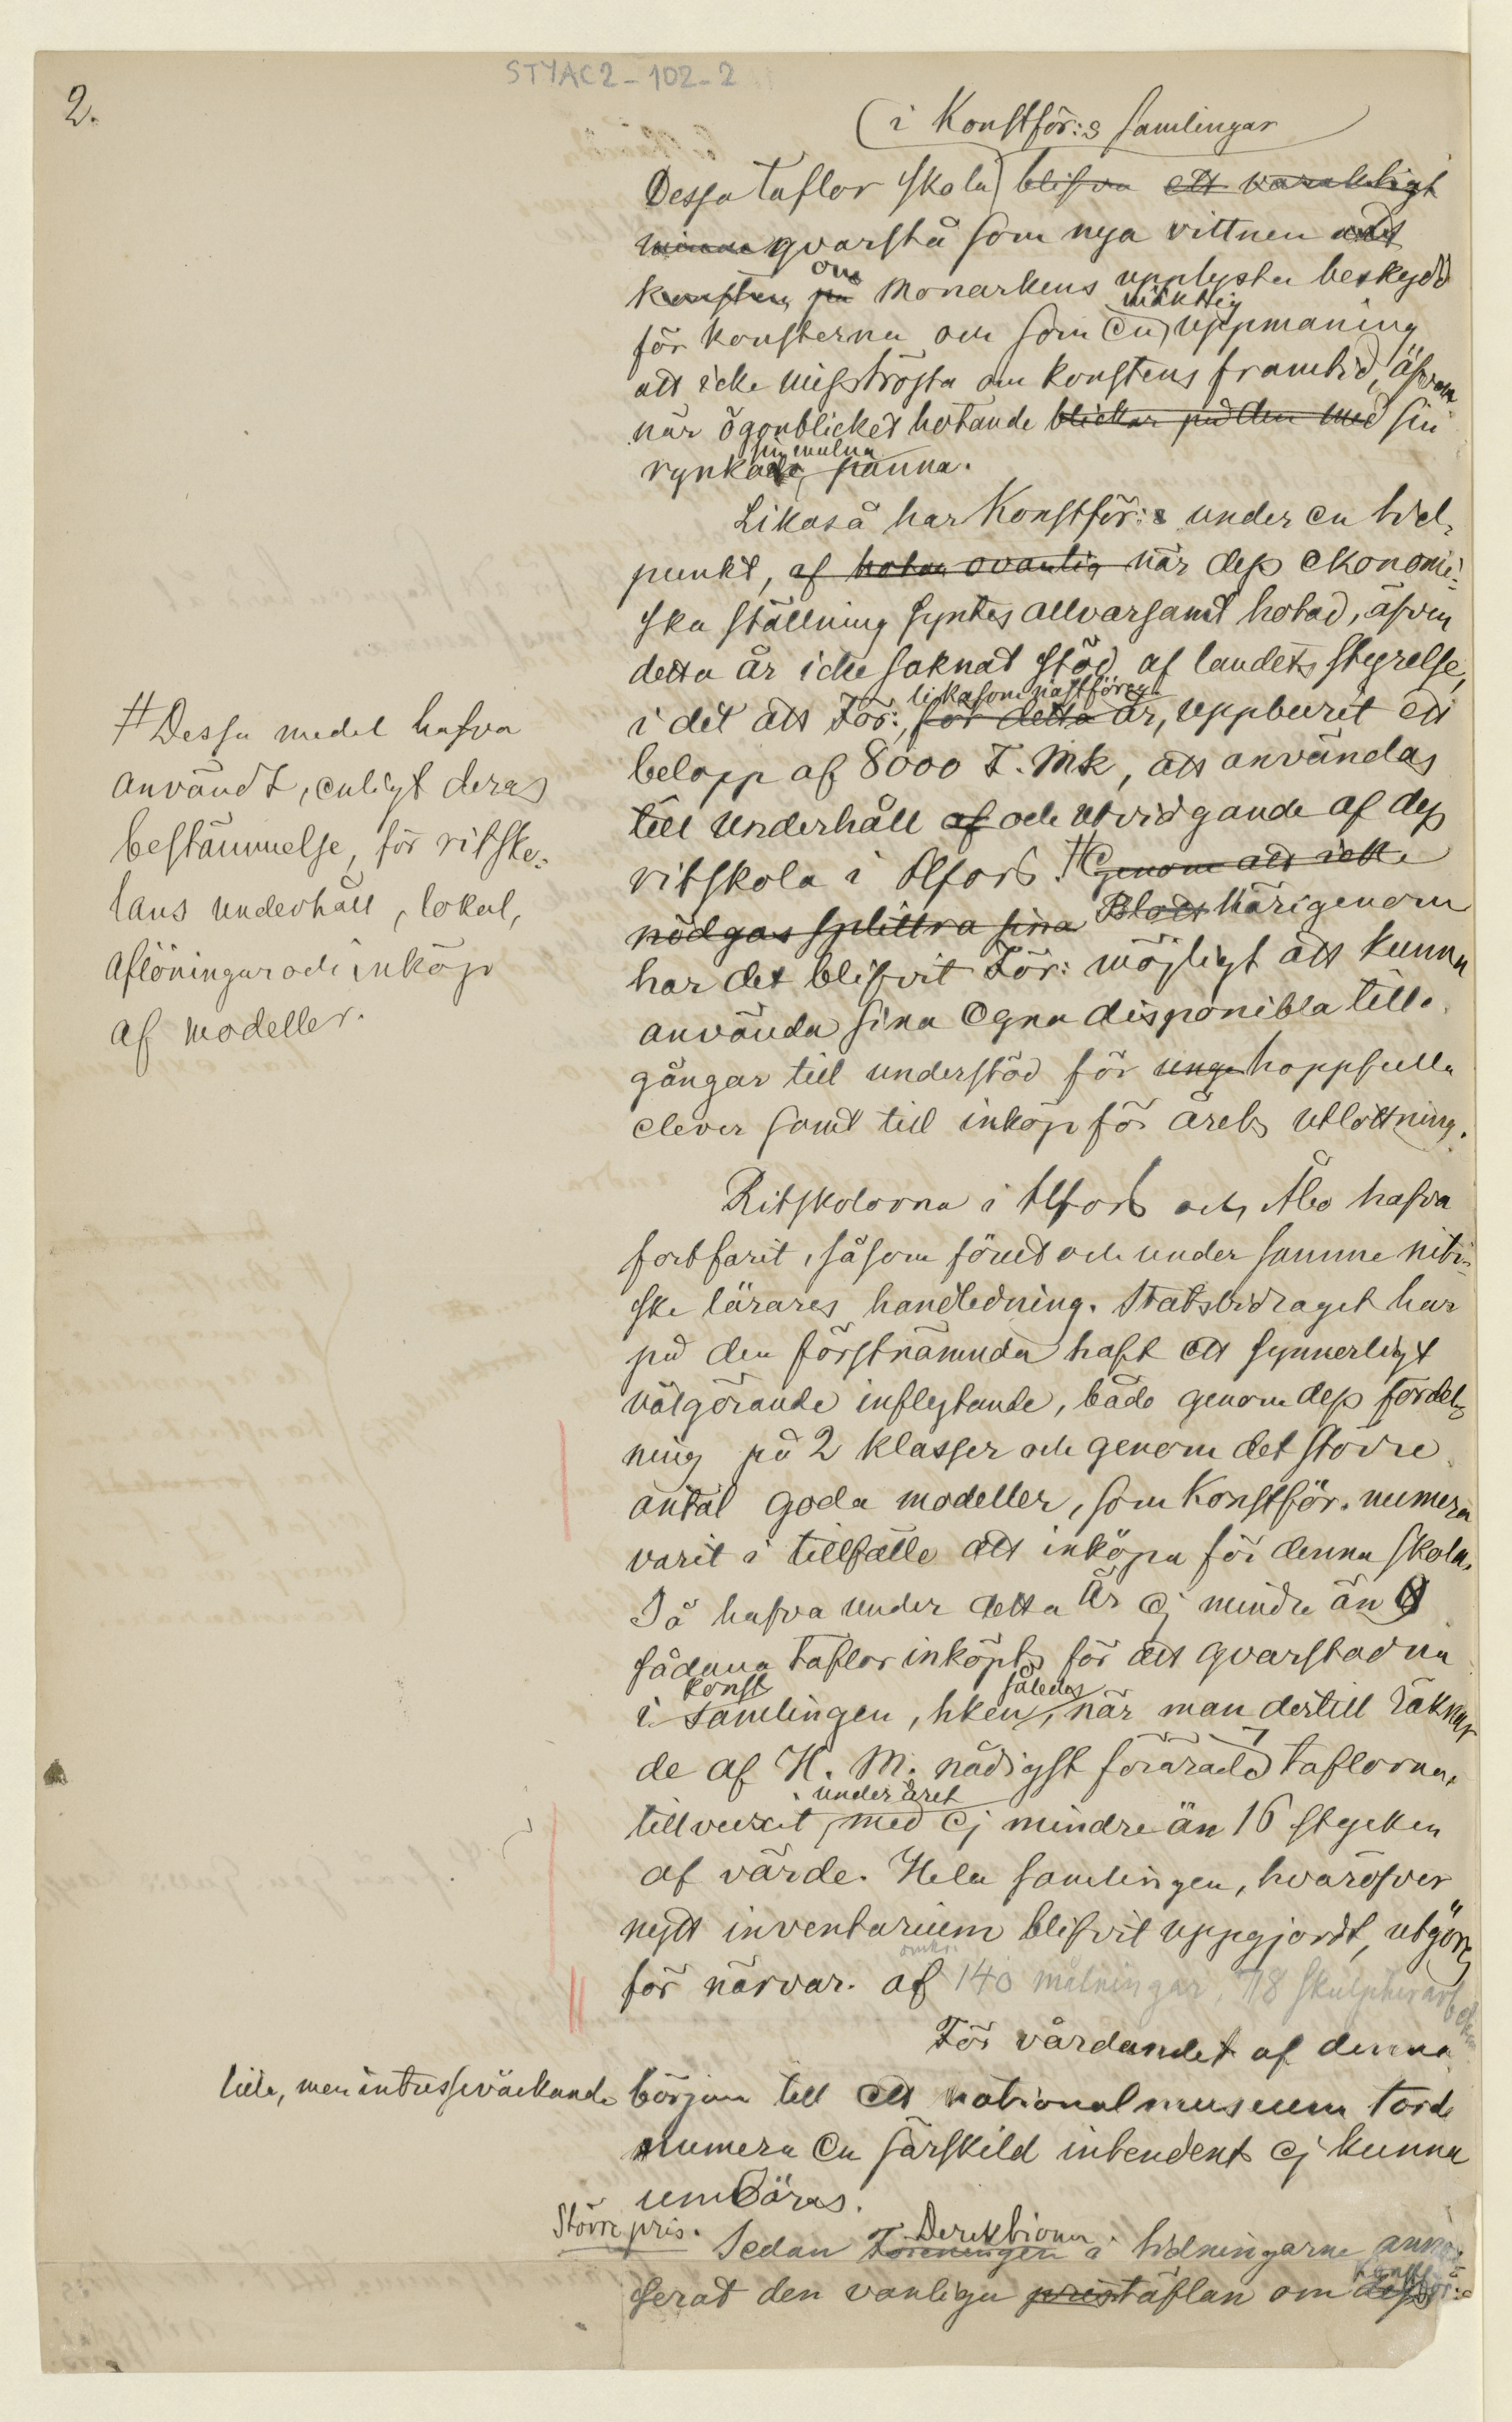 STYAC2-102-2
2.
i Konstför:s samlingar
Dessa taflor skola blifva ett varaktigt
minne qvarstå som nya vittnen
konsten på om Monarkens upplysta beskydd
för konsterna och som en mäktig uppmaning
att icke misströsta om konstens framtid, äfven
när ögonblicket hotande blickar på den med sin
rynkade sin mulna panna.
Likaså har Konstför:s under en tid-
punkt, af ovanlig när dess ekonomi-
ska ställning syntes allvarsamt hotad, äfven
detta år icke saknat stöd af landets styrelse,
i det att För:, för detta likasom nästföreg. år, uppburit ett
belopp af 8000 F. Mk, att användas
till underhåll af och utvidgande af dess
ritskola i Hfors. # Genom att icke
nödgas splittra sina Härigenom
har det blifvit För: möjligt att kunna
använda sina egna disponibla till-
gångar till understöd för unga hoppfulla
elever samt till inköp för årets utlottning.
# Dessa medel hafva
användt, enligt deras
bestämmelse, för ritsko-
lans underhåll, lokal,
aflöningar och inköp
af modeller.
Ritskolorna i Hfors och Åbo hafva
fortfarit, såsom förut och under samme niti-
ske lärares handledning. Statsbidraget har
på den förstnämnda haft ett synnerligt
välgörande inflytande, både genom dess fördel-
ning på 2 klasser och genom det större
antal goda modeller, som Konstför. numera
varit i tillfälle att inköpa för denna skola.
Så hafva under detta år ej mindre än 9
sådana taflor inköpts för att qvarstadna
i konstsamlingen, hken, således när man dertill räknar
de af H. M. nådigst förärade 7 taflorna,
tillvuxit under året med ej mindre än 16 stycken
af värde. Hela samlingen, hvaröfver
nytt inventarium blifvit uppgjordt, utgöres
för närvar. af omkr. 140 målningar, 78 skulpturarb.
För vårdandet af denna
lilla, men intresseväckande början till ett nationalmuseum torde
numera en särskild intendent ej kunna
umbäras.
Större pris. Sedan Föreningen Direktionen i tidningarne annon-
serat den vanliga pristäflan om dess Konstför:s